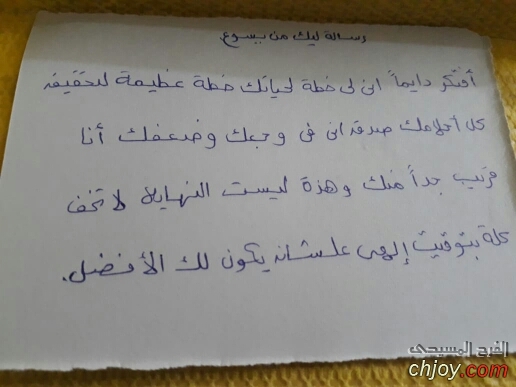 رسالة ليك من يسوع
أفتكر دايماً انى لى خطة لحياتك خطة عظيمة لتحقيقه
كل أحلامك صدقه انى فى وجعك وضعفك أنا
قريب جداً منك وهذة ليست النهايه لا تخف
كلة بتوقيت إلهى علشانه يكون لك الأفضل.
الفرح المسيحى
chjoy.com